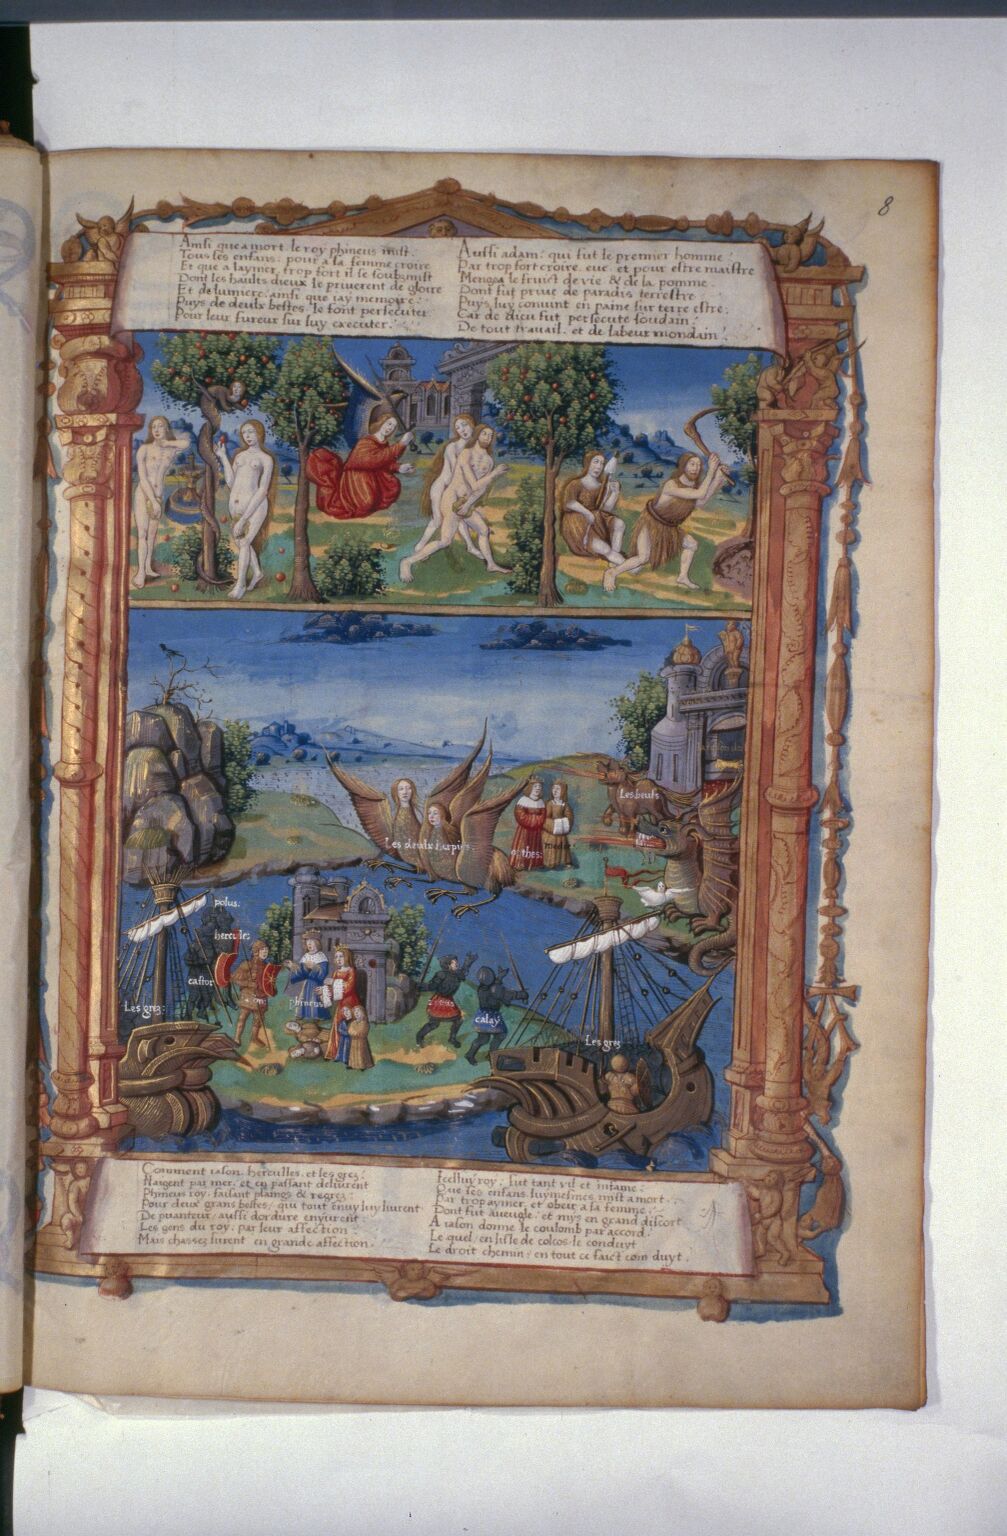 8
Ainsi que a mort le roy phineus mist
Tous ses enfans: pour a sa femme croire
Et que a laymer, trop fort il se soubzmist
Dont les haults dieux le priuerent de gloire
Et de lumiere: ainsi que iay memoire:
Puys de deulx bestes le font persecuter
Pour leur fureur sur luy executer:
Aussi adam: qui fut le premier homme
Par trop fort croire eue, et pour estre maistre
Mengea le fruict de vie & de la pomme
Dont fut priue de paradis terrestre
Puys luy conuint en paine sur terre estre:
Car de dieu fut persecute soudain
De tout trauail, et de labeur mondain
Les beufs
Les deulx harpies:
othes:
polus:
hercules
castor
Les grez:
phineus
zetus
calay
Les grez
Comment iason, herculles, et les grez:
Naigent par mer, et en passant deliurent
Phineus roy: faisant plaings & regrez:
Pour deux grans bestes / qui tout enuy luy liurent
De puanteur / aussi dordure enyurent:
Les gens du roy: par leur affection:
Mais chassez furent en grande affection.
Icelluy roy: fut tant vil et infame:
Que ses enfans luymesmes mist a mort:
Par trop aymer, et obeir a sa femme:
Dont fut aueugle: et mys en grand discort
A iason donne le coulomb par accord:
Le quel / en lisle de colcos le conduyt
Le droit chemin: en tout ce faict com duyt.